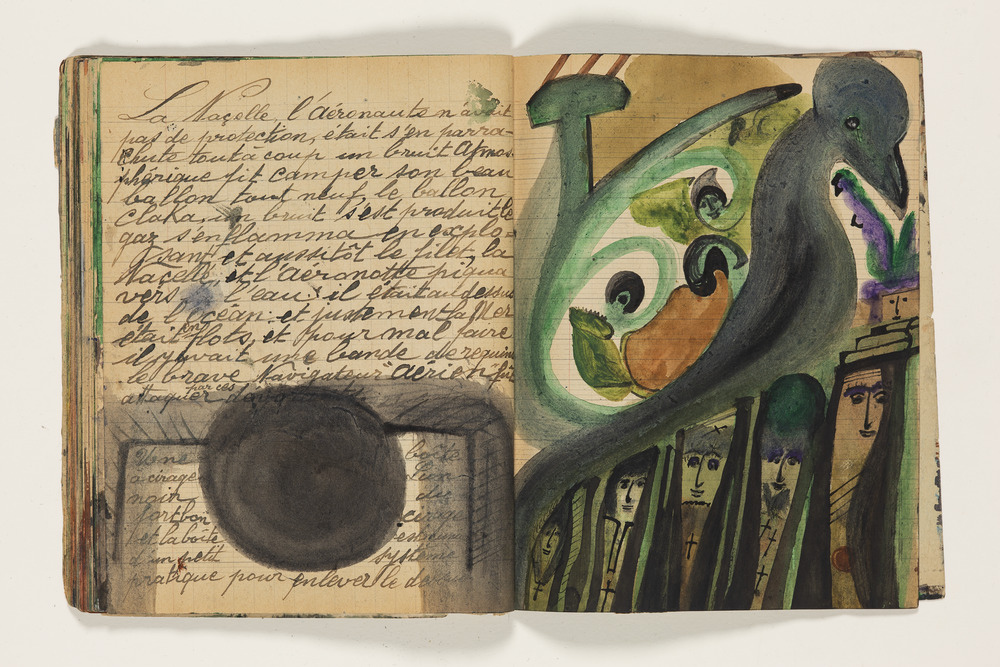 La Naçelle, l'aéronaute n'avait
pas de protection, était s'en parra-
chute toutà coup un bruit Atmos-
phérique fit camper son beau
ballon tout neuf, le ballon
Claka, un bruit s'est produit le
gaz s'enflamma en explo-
sant et aussitôt le filet, la
Naçelle, et l'Aéronotte piqua
vers l'eau: il était au dessus
de l'océan et justement la Mer
était en flots, et pour mal faire
il y avait une bande de requin
le brave Navigateur Aérien fût
attaquer par ces
Une boîte
a cirage Lun
noir du
fort bon cirage
et la boîte est
d'un petit système
pratique pour enlever le dessus